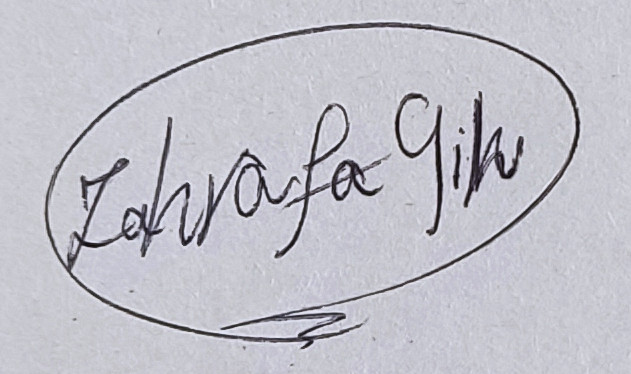 Zahrafa Gik